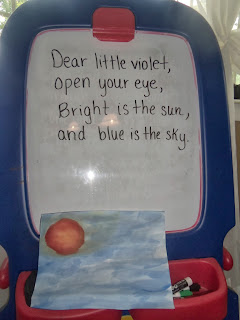 Dear little violet,
open your eye,
Bright is the sun,
and blue is the sky.